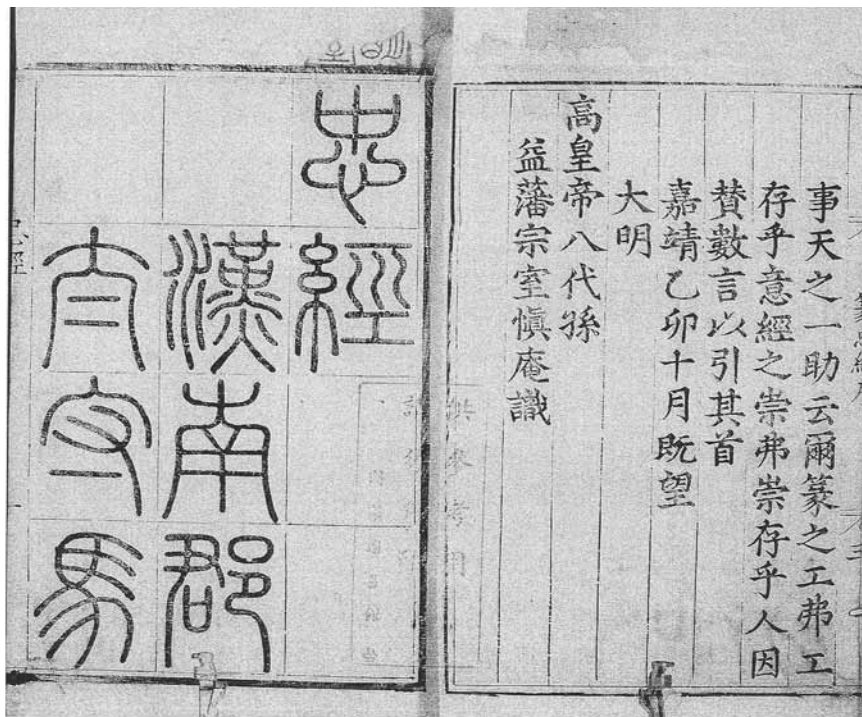 事天之一助云爾篆之工弗工
存乎意經之崇弗崇存乎人因
賛數言以引其首
嘉靖乙卯十月既望
大明
高皇帝八代孫
益藩宗室愼庵識
忠經
漢南郡
太守馬
忠經